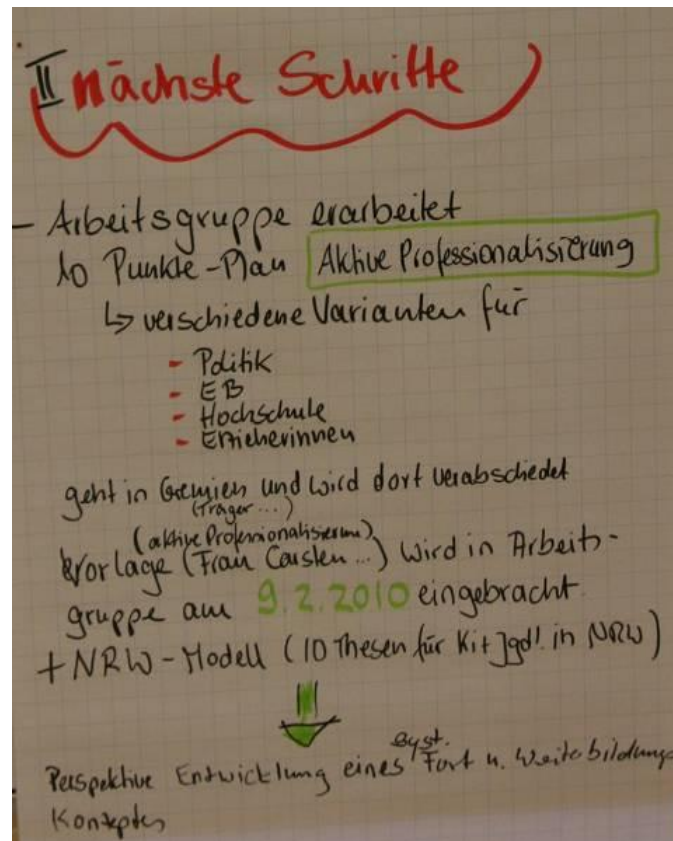 II nächste Schritte
- Arbeitsgruppe erarbeitet
10 Punkte-Plan Aktive Professionalisierung
↳ verschiedene Varianten für
- Politik
- EB
- Hochschule
- Erzieherinnen
geht in Gremien und wird dort verabschiedet
(Träger ...)
(aktive Professionalisierung)
Vorlage (Frau Carsten ...) wird in Arbeits-
gruppe am 9.2.2010 eingebracht.
+ NRW-Modell (10 Thesen für in NRW)
Perspektive Entwicklung eines syst. Fort u. Weiterbildungs
Konzeptes